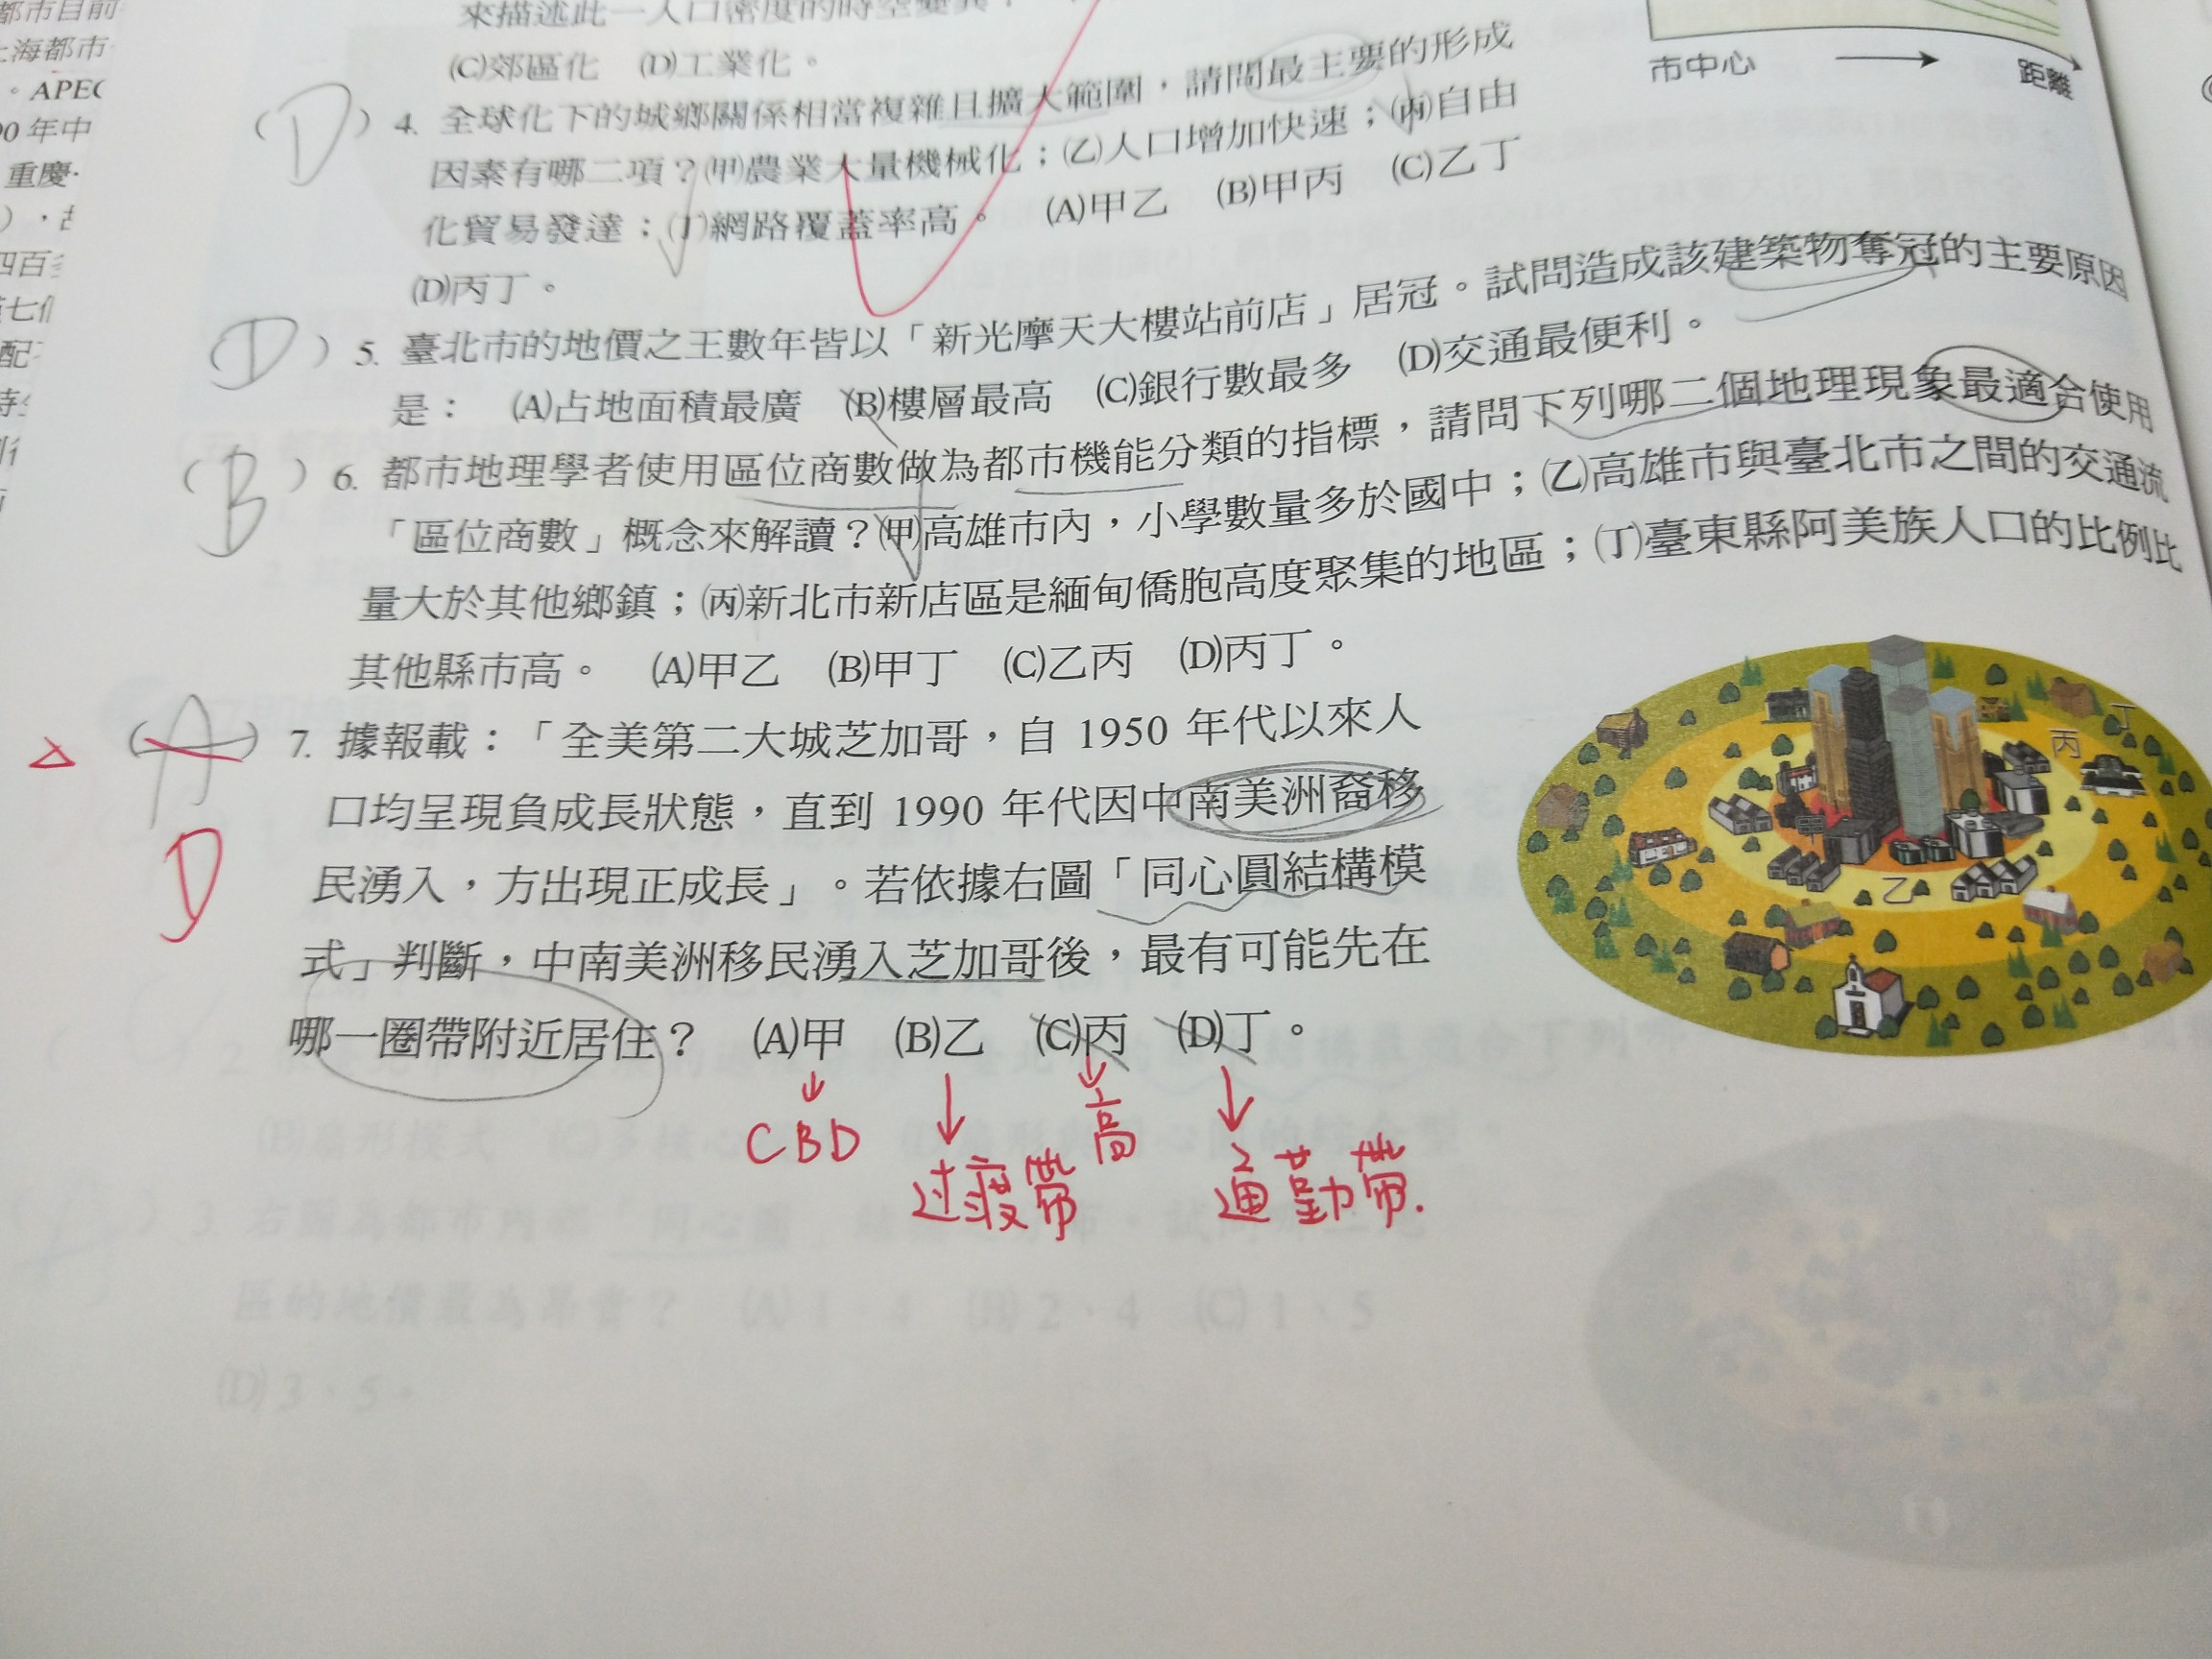 都市目前
上海都市
。APEC
90 年中
重慶
），
四百
七
配
來描述此一人口密度的時空變異？
(C)郊區化 (D)工業化。
市中心
距離
(D) 4. 全球化下的城鄉關係相當複雜且擴大範圍，請問最主要的形成
因素有哪二項？(甲)農業大量機械化；(乙)人口增加快速；(丙)自由
化貿易發達；(丁)網路覆蓋率高。 (A)甲乙 (B)甲丙 (C)乙丁
(D)丙丁。
(D) 5. 臺北市的地價之王數年皆以「新光摩天大樓站前店」居冠。試問造成該建築物奪冠的主要原因
是： (A)占地面積最廣 (B)樓層最高 (C)銀行數最多 (D)交通最便利。
(B) 6. 都市地理學者使用區位商數做為都市機能分類的指標，請問下列哪二個地理現象最適合使用
「區位商數」概念來解讀？(甲)高雄市內，小學數量多於國中；(乙)高雄市與臺北市之間的交通流
量大於其他鄉鎮；(丙)新北市新店區是緬甸僑胞高度聚集的地區；(丁)臺東縣阿美族人口的比例比
其他縣市高。 (A)甲乙 (B)甲丁 (C)乙丙 (D)丙丁。
(A) 7. 據報載：「全美第二大城芝加哥，自 1950 年代以來人
口均呈現負成長狀態，直到 1990 年代因中南美洲裔移
D
民湧入，方出現正成長」。若依據右圖「同心圓結構模
式」判斷，中南美洲移民湧入芝加哥後，最有可能先在
哪一圈帶附近居住？ (A)甲 (B)乙 (C)丙 (D)丁。
丁
丙
乙
CBD
过渡帶
高
通勤帶.
3. 右圖為都市內部「同心圓
區的地價最為昂貴？ (A) 1、4 (B) 2、4 (C) 1、5
(D) 3、5。